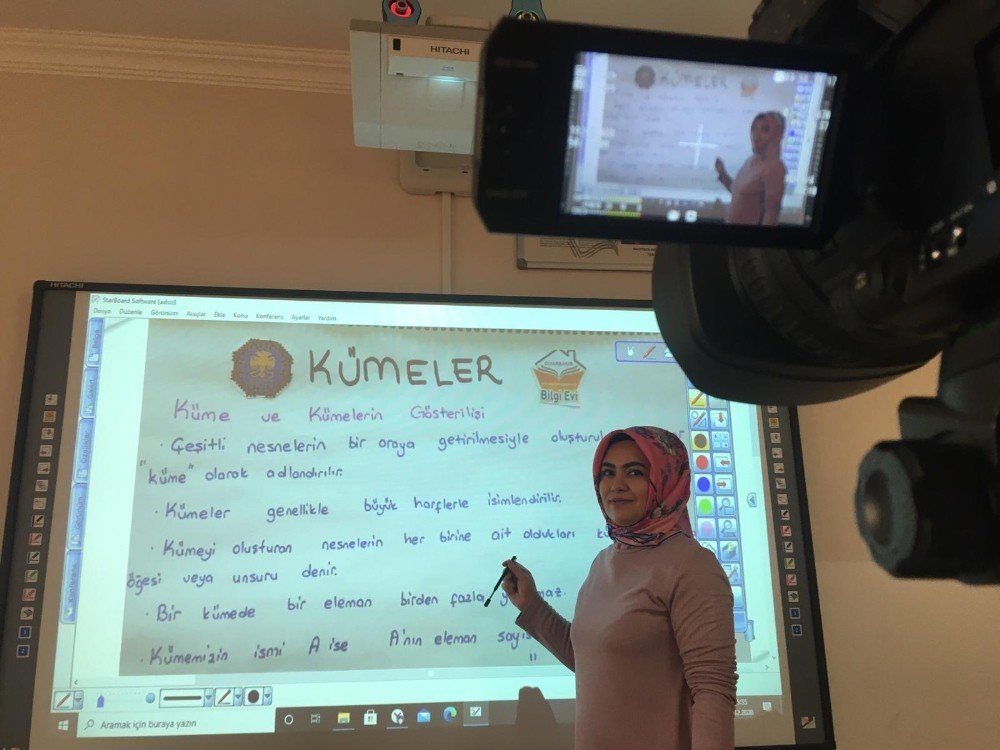 HITACHI
KÜMELER
HITACHI
StarBoard Software [adsız]
Dosya Düzenle Görünüm Araçlar Ekle Konu Konferans Ayarlar Yardım
KÜMELER
DİYARBAKIR
Bilgi Evi
Küme ve Kümelerin Gösterilişi
· Çeşitli nesnelerin bir araya getirilmesiyle
"küme" olarak adlandırılır.
· Kümeler genellikle büyük harflerle isimlendirilir.
· Kümeyi oluşturan nesnelerin her birine ait oldukları
öğesi veya unsuru denir.
· Bir kümede bir eleman birden fazla
· Kümemizin ismi A ise A'nın eleman
Aramak için buraya yazın